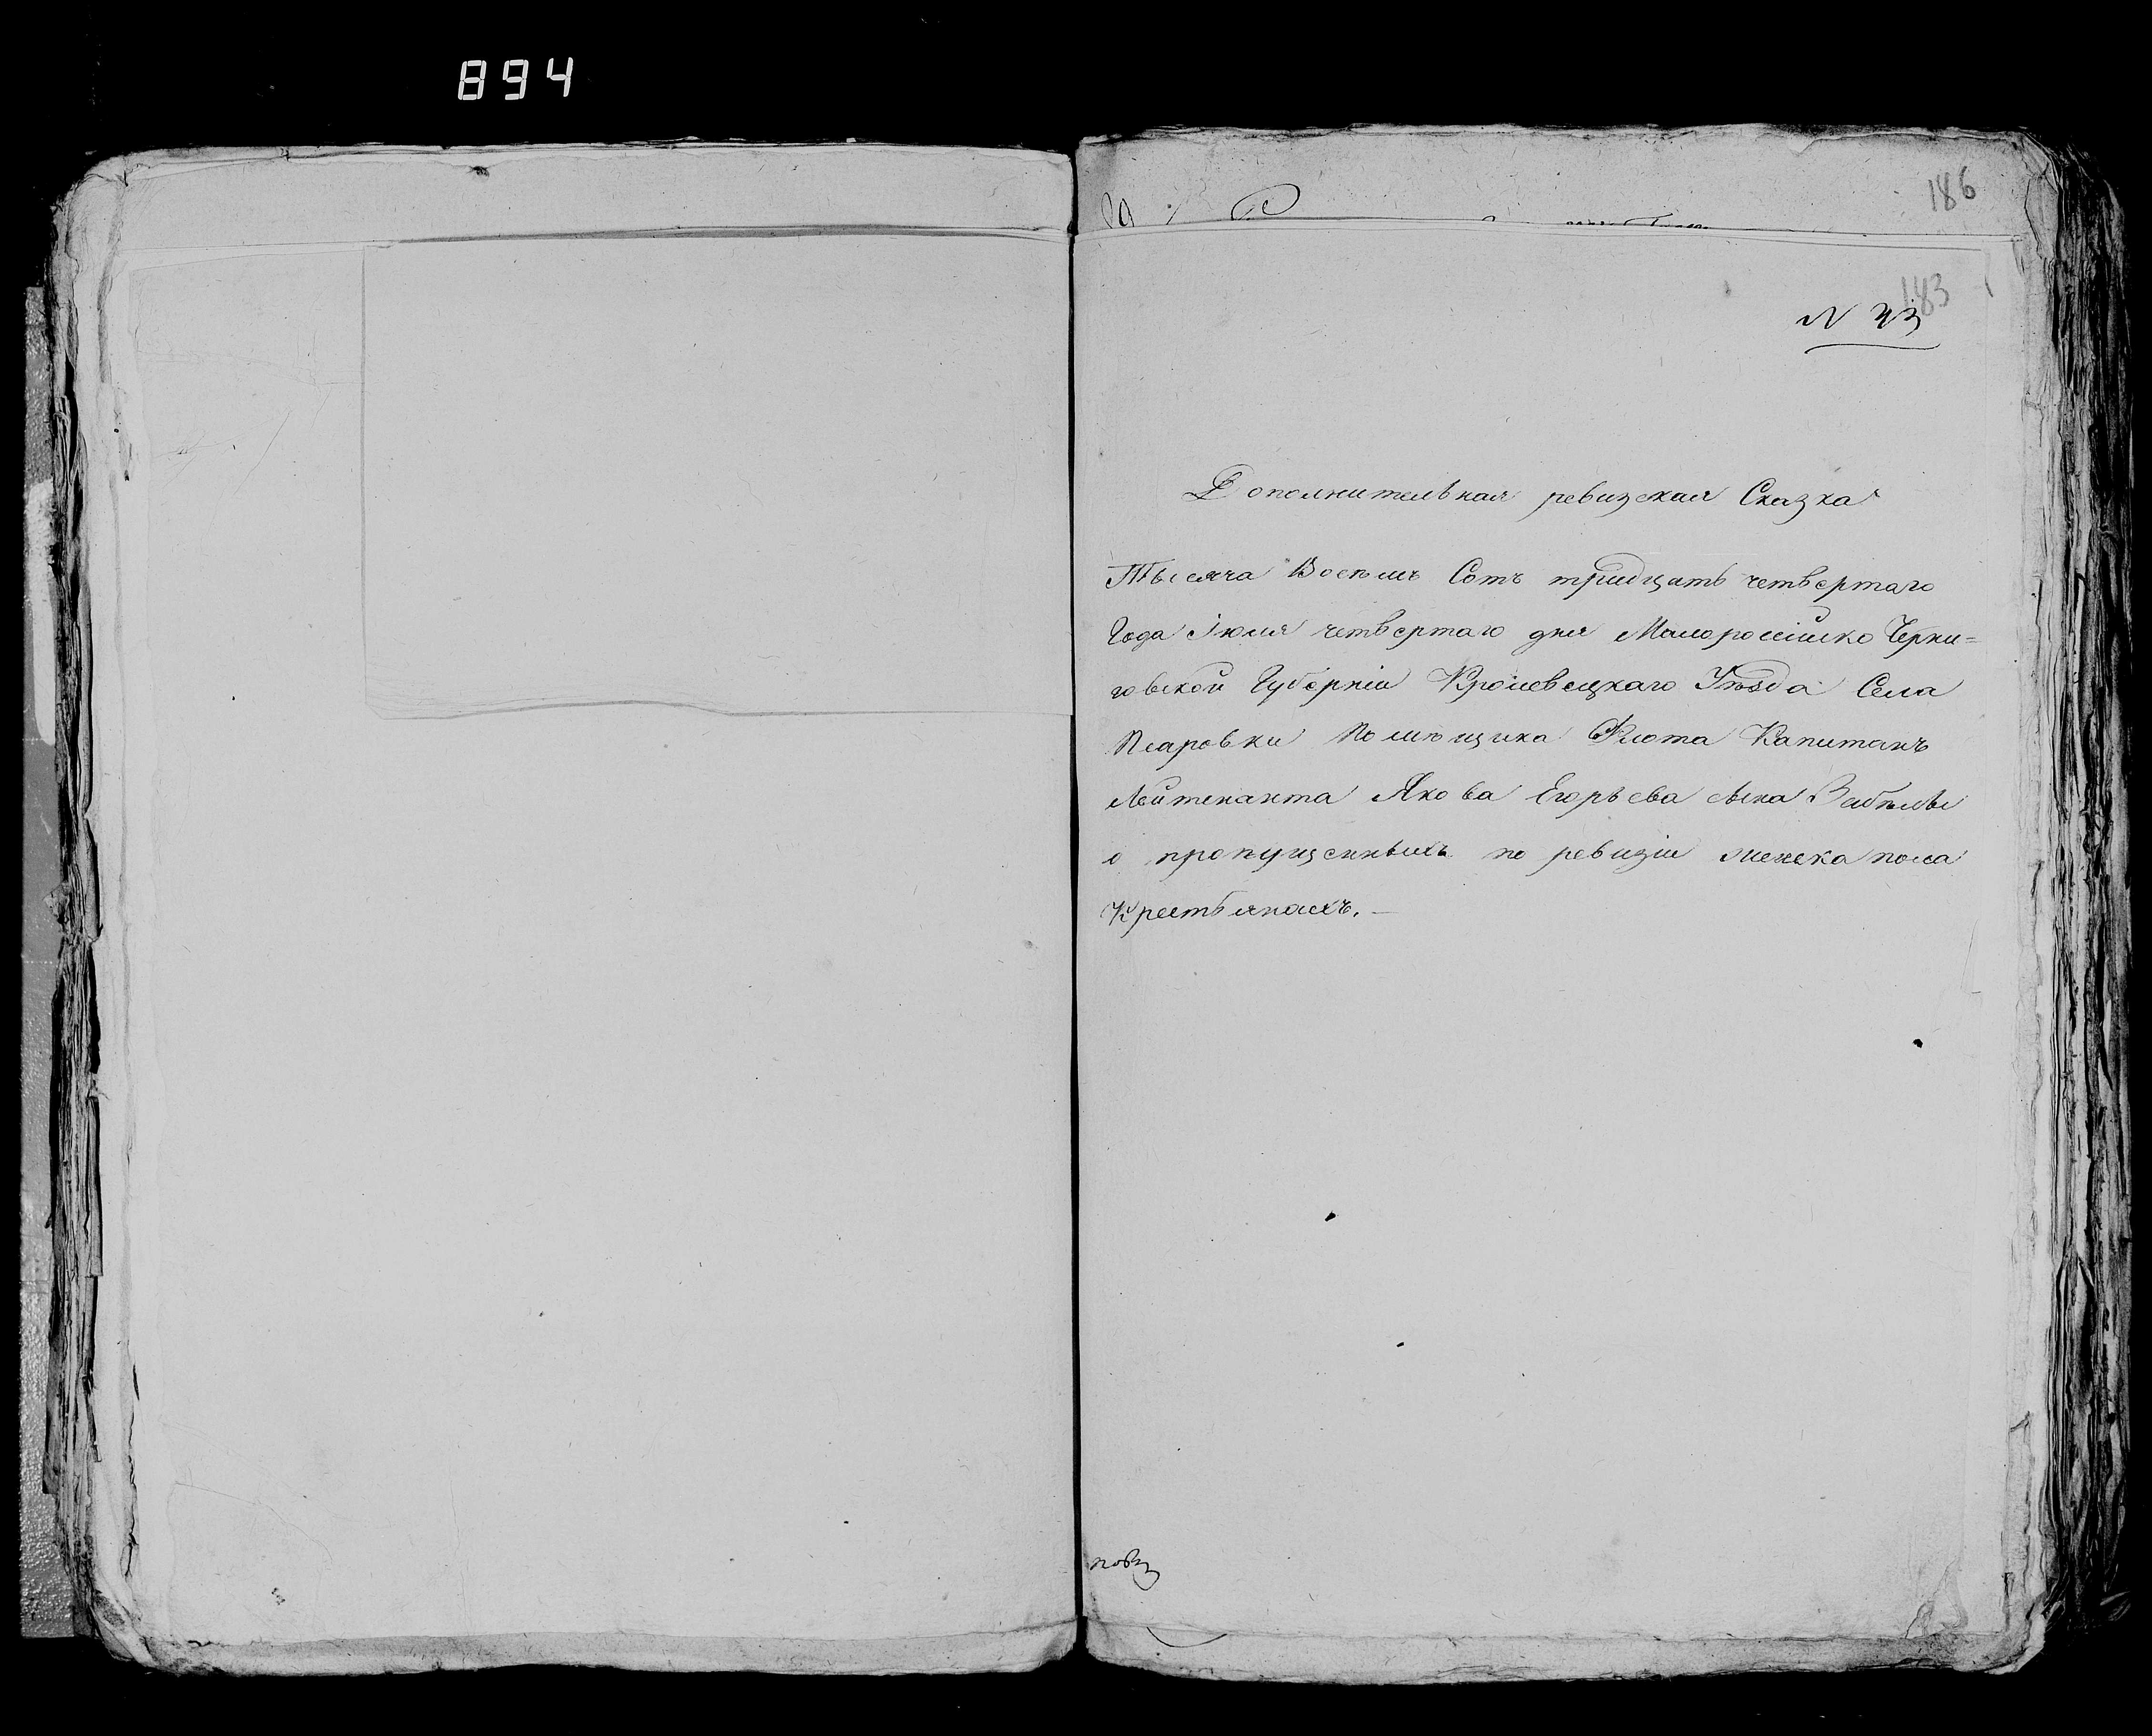 894
186
183
N 43
Дополнительная ревизская Сказка
Тысяча Восемь Сотъ тридцать четвертаго
Года Іюля четвертаго дня Малороссійско Черни=
говской Губерніи Кролевецкаго Уѣзда Села
Псаровки Помѣщика Флота Капитанъ
Лейтенанта Якова Егорьева сына Забѣлы
о пропущенныхъ по ревизіи женска пола
Крестьянахъ. —